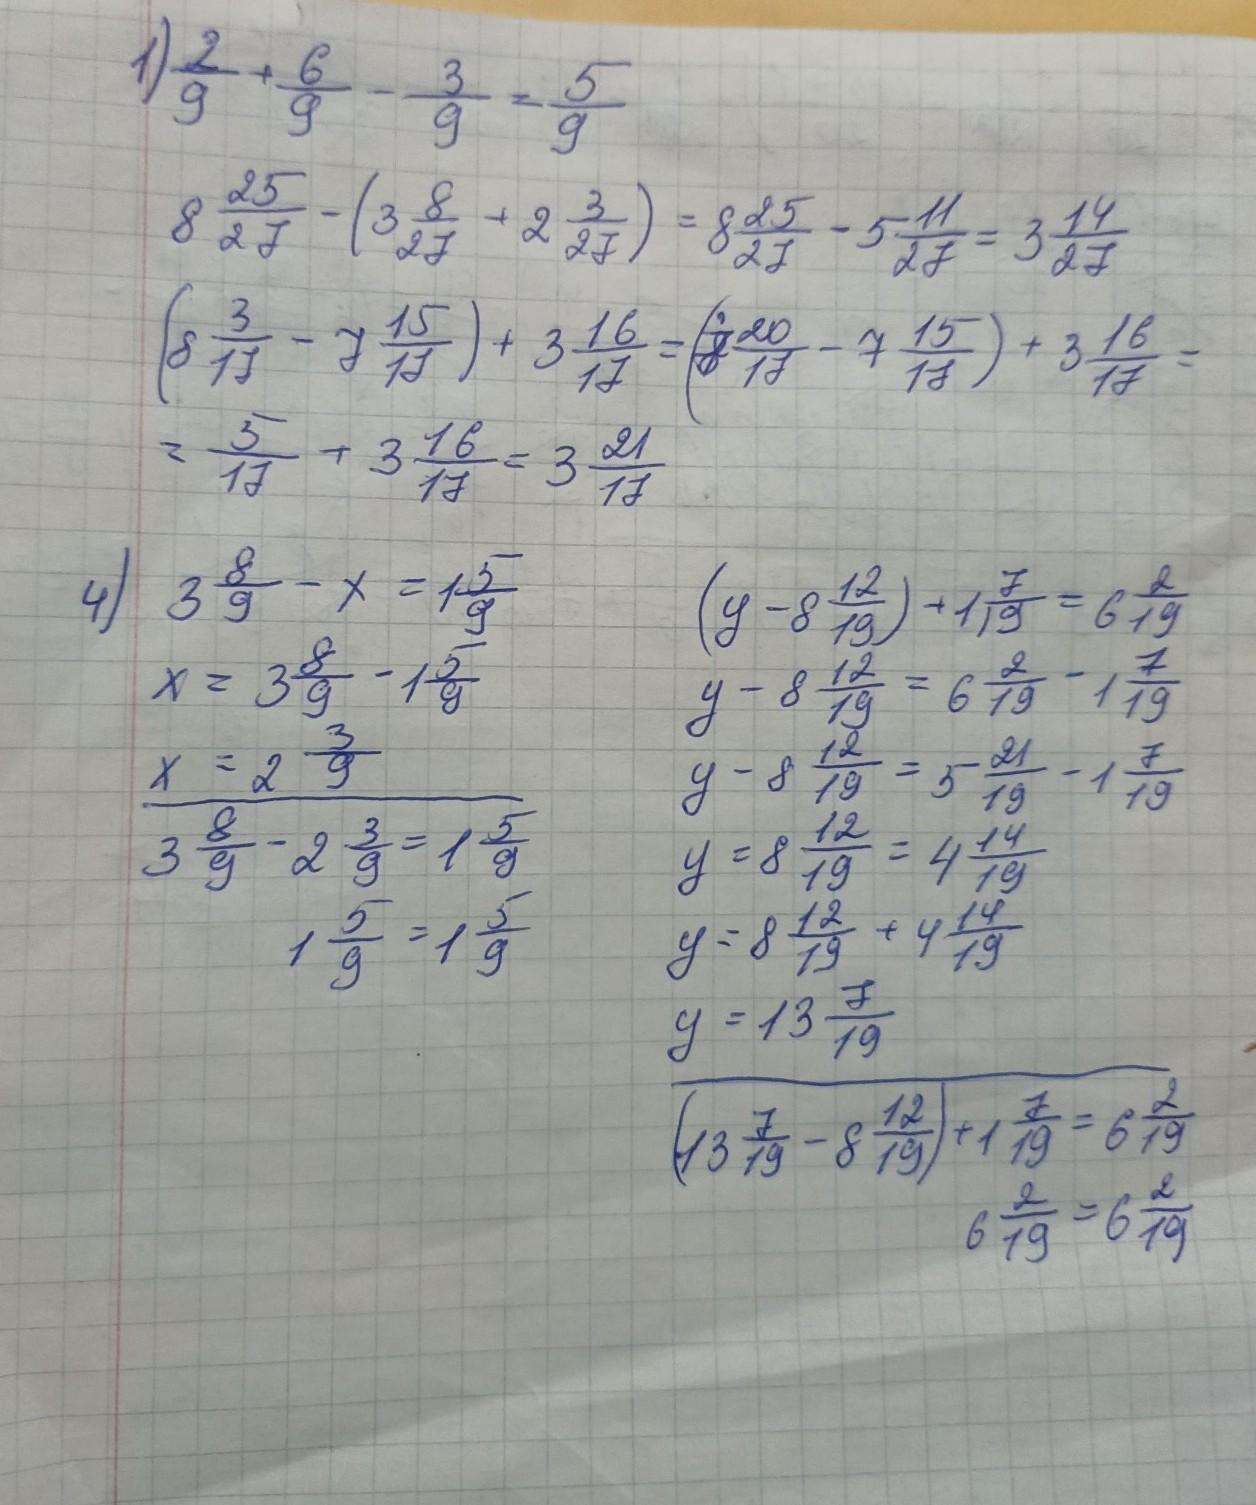 1) 2/9 + 6/9 - 3/9 = 5/9
8 25/27 - (3 8/27 + 2 3/27) = 8 25/27 - 5 11/27 = 3 14/27
(8 3/17 - 7 15/17) + 3 16/17 = (7 20/17 - 7 15/17) + 3 16/17 =
= 5/17 + 3 16/17 = 3 21/17
4) 3 8/9 - x = 1 5/9
x = 3 8/9 - 1 5/9
x = 2 3/9
3 8/9 - 2 3/9 = 1 5/9
1 5/9 = 1 5/9
(y - 8 12/19) + 1 7/19 = 6 2/19
y - 8 12/19 = 6 2/19 - 1 7/19
y - 8 12/19 = 5 21/19 - 1 7/19
y = 8 12/19 = 4 14/19
y = 8 12/19 + 4 14/19
y = 13 7/19
(13 7/19 - 8 12/19) + 1 7/19 = 6 2/19
6 2/19 = 6 2/19